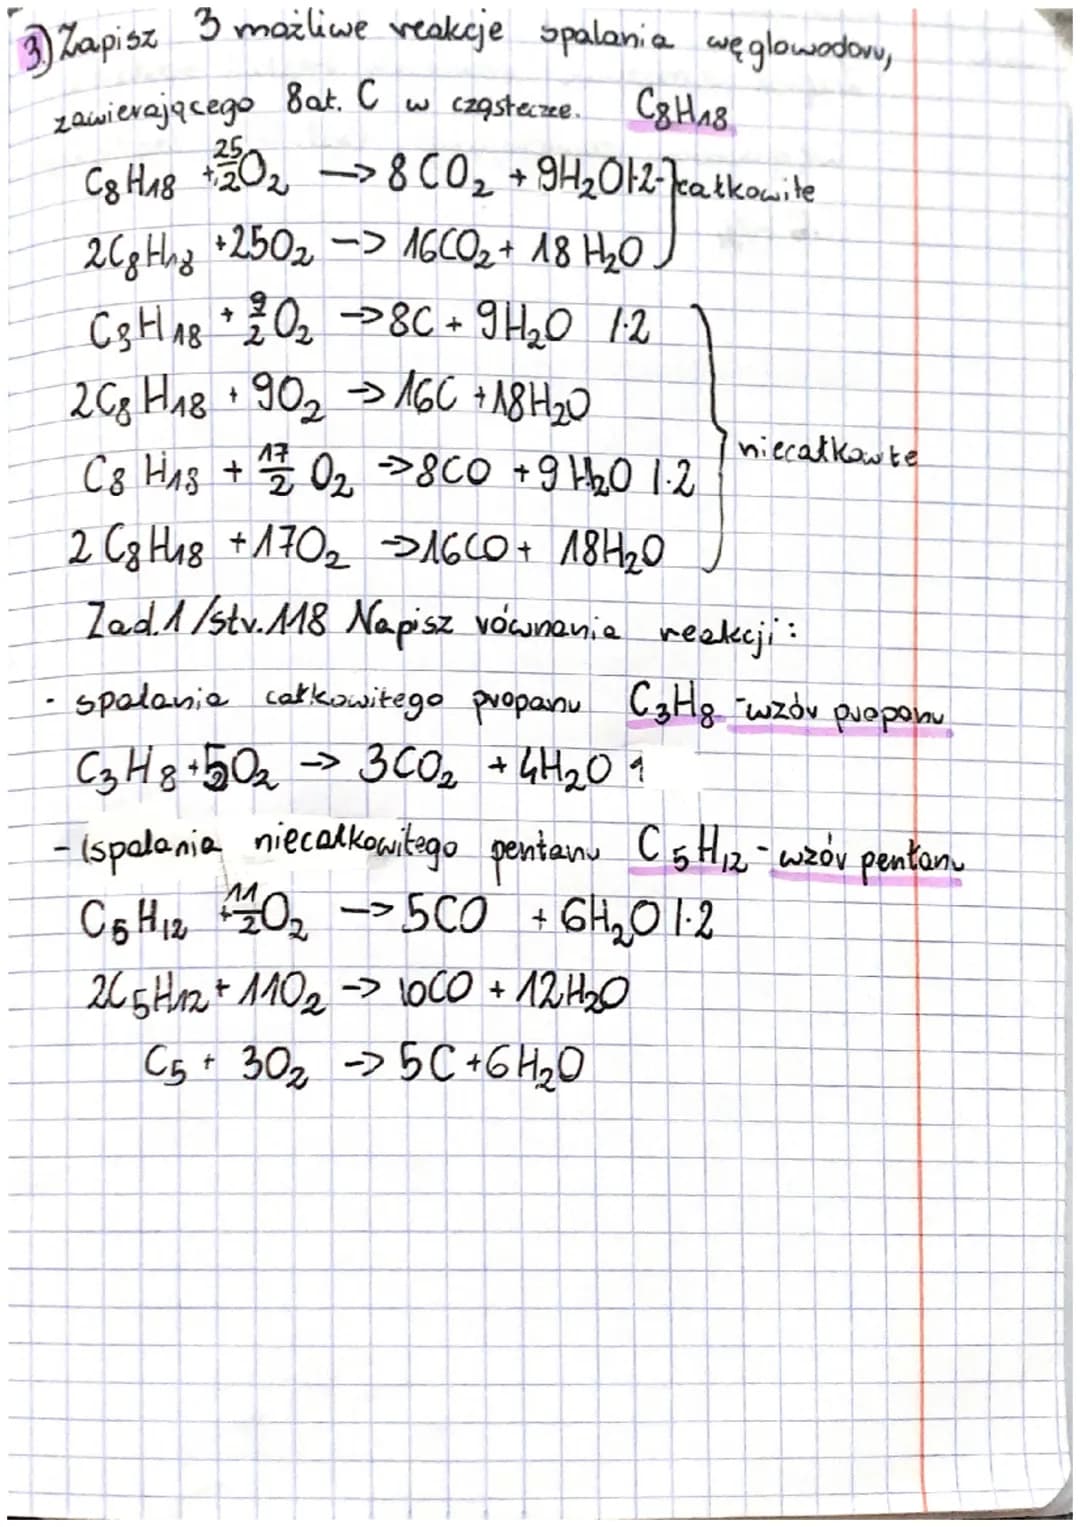 3.) Zapisz 3 możliwe reakcje spalania węglowodoru,
zawierającego 8at. C w cząsteczce. C₈H₁₈
C₈H₁₈ + 25/2 O₂ → 8CO₂ + 9H₂O |·2 - całkowite
2C₈H₁₈ + 25O₂ -> 16CO₂ + 18 H₂O
C₈H₁₈ + 9/2 O₂ → 8C + 9H₂O |·2
2C₈H₁₈ + 9O₂ → 16C + 18H₂O
niecałkowte
C₈H₁₈ + 17/2 O₂ → 8CO + 9H₂O |·2
2C₈H₁₈ + 17O₂ → 16CO + 18H₂O
Zad.1/str.118 Napisz równania reakcji:
- spalania całkowitego propanu C₃H₈ - wzór propanu
C₃H₈ + 5O₂ → 3CO₂ + 4H₂O
- spalania niecałkowitego pentanu C₅H₁₂ - wzór pentanu
C₅H₁₂ + 11/2 O₂ -> 5CO + 6H₂O |·2
2C₅H₁₂ + 11O₂ -> 10CO + 12H₂O
C₅ + 3O₂ -> 5C + 6H₂O